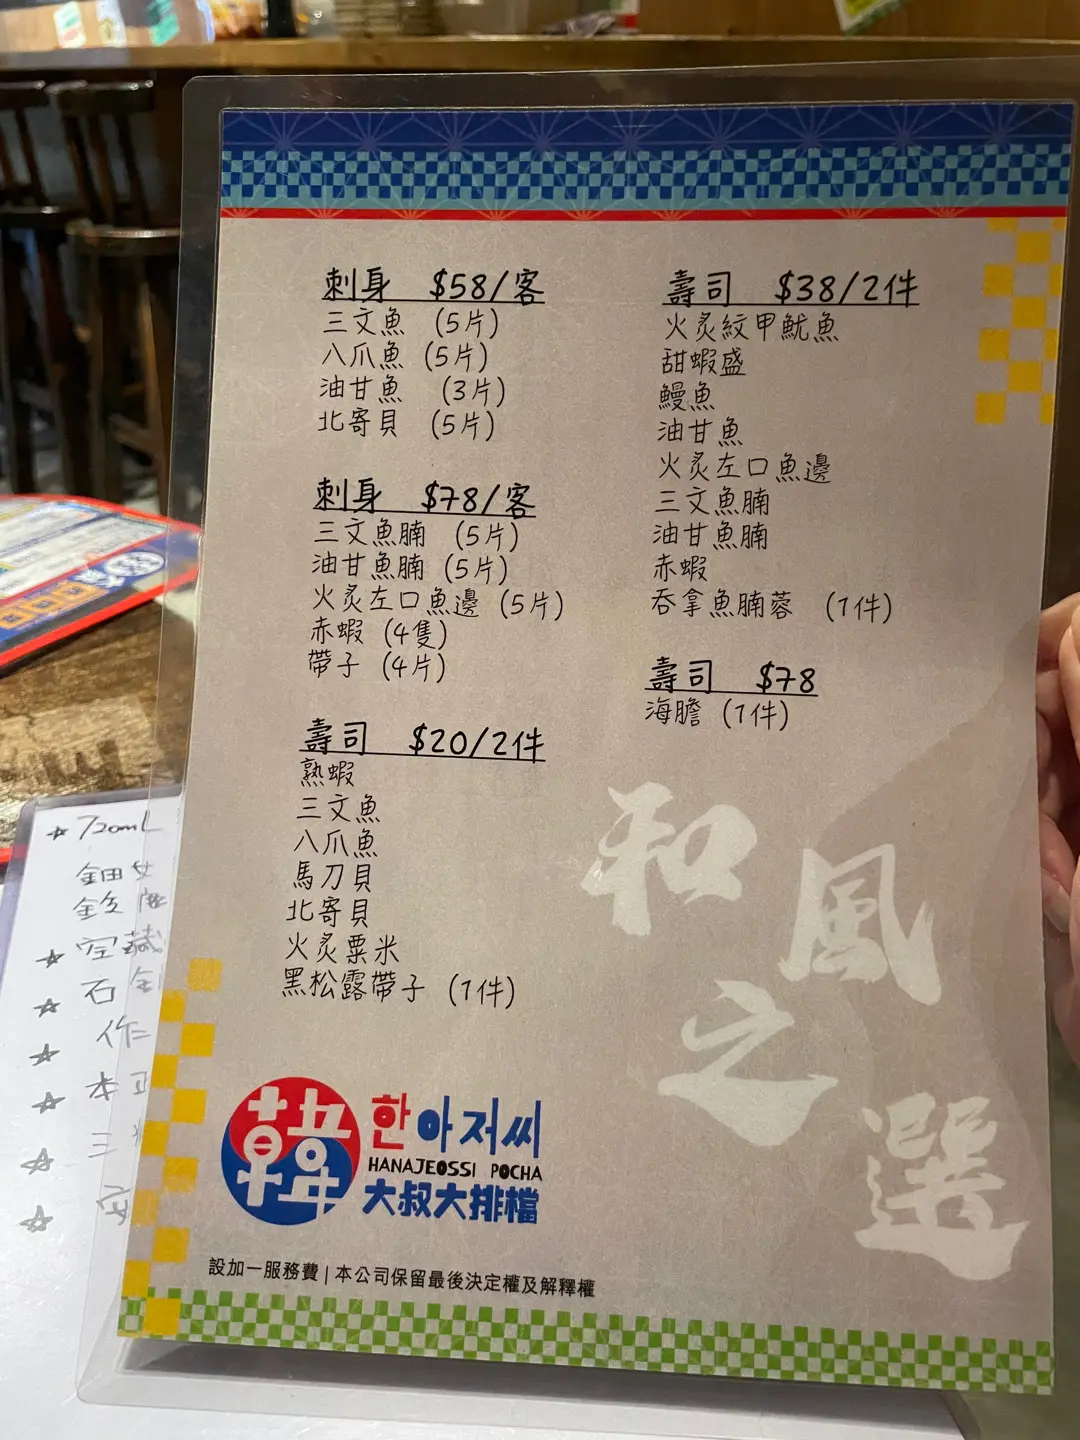 刺身 $58/客
三文魚 (5片)
八爪魚 (5片)
油甘魚 (3片)
北寄貝 (5片)
刺身 $78/客
三文魚腩 (5片)
油甘魚腩 (5片)
火炙左口魚邊 (5片)
赤蝦 (4隻)
帶子 (4片)
壽司 $20/2件
熟蝦
三文魚
八爪魚
馬刀貝
北寄貝
火炙粟米
黑松露帶子 (1件)
壽司 $38/2件
火炙紋甲魷魚
甜蝦盛
鰻魚
油甘魚
火炙左口魚邊
三文魚腩
油甘魚腩
赤蝦
吞拿魚腩蓉 (1件)
壽司 $78
海膽 (1件)
和風之選
韓
한아저씨
HANAJEOSSI POCHA
大叔大排檔
設加一服務費 | 本公司保留最後決定權及解釋權
720mL
空藏
石
作
本
三